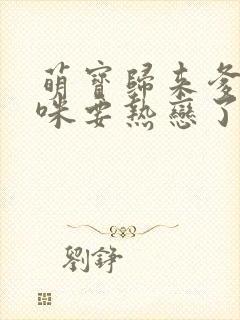 萌寶歸來爹
咪要熱戀了
劉錚